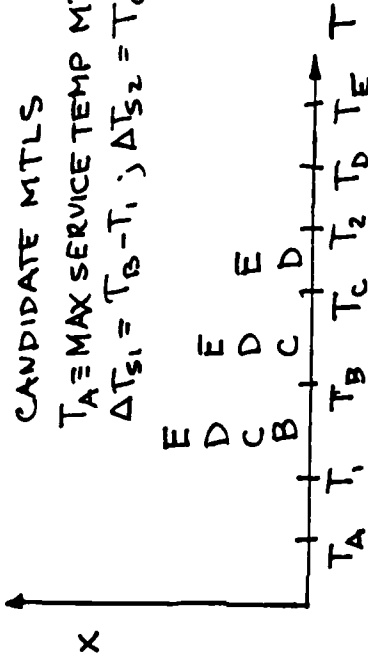 CANDIDATE MTLS
T_A ≡ MAX SERVICE TEMP
ΔT_S1 = T_B - T_1 ; ΔT_S2 =
X
E
D
C
B
E
D
C
E
D
T_A T_1 T_B T_C T_2 T_D T_E T